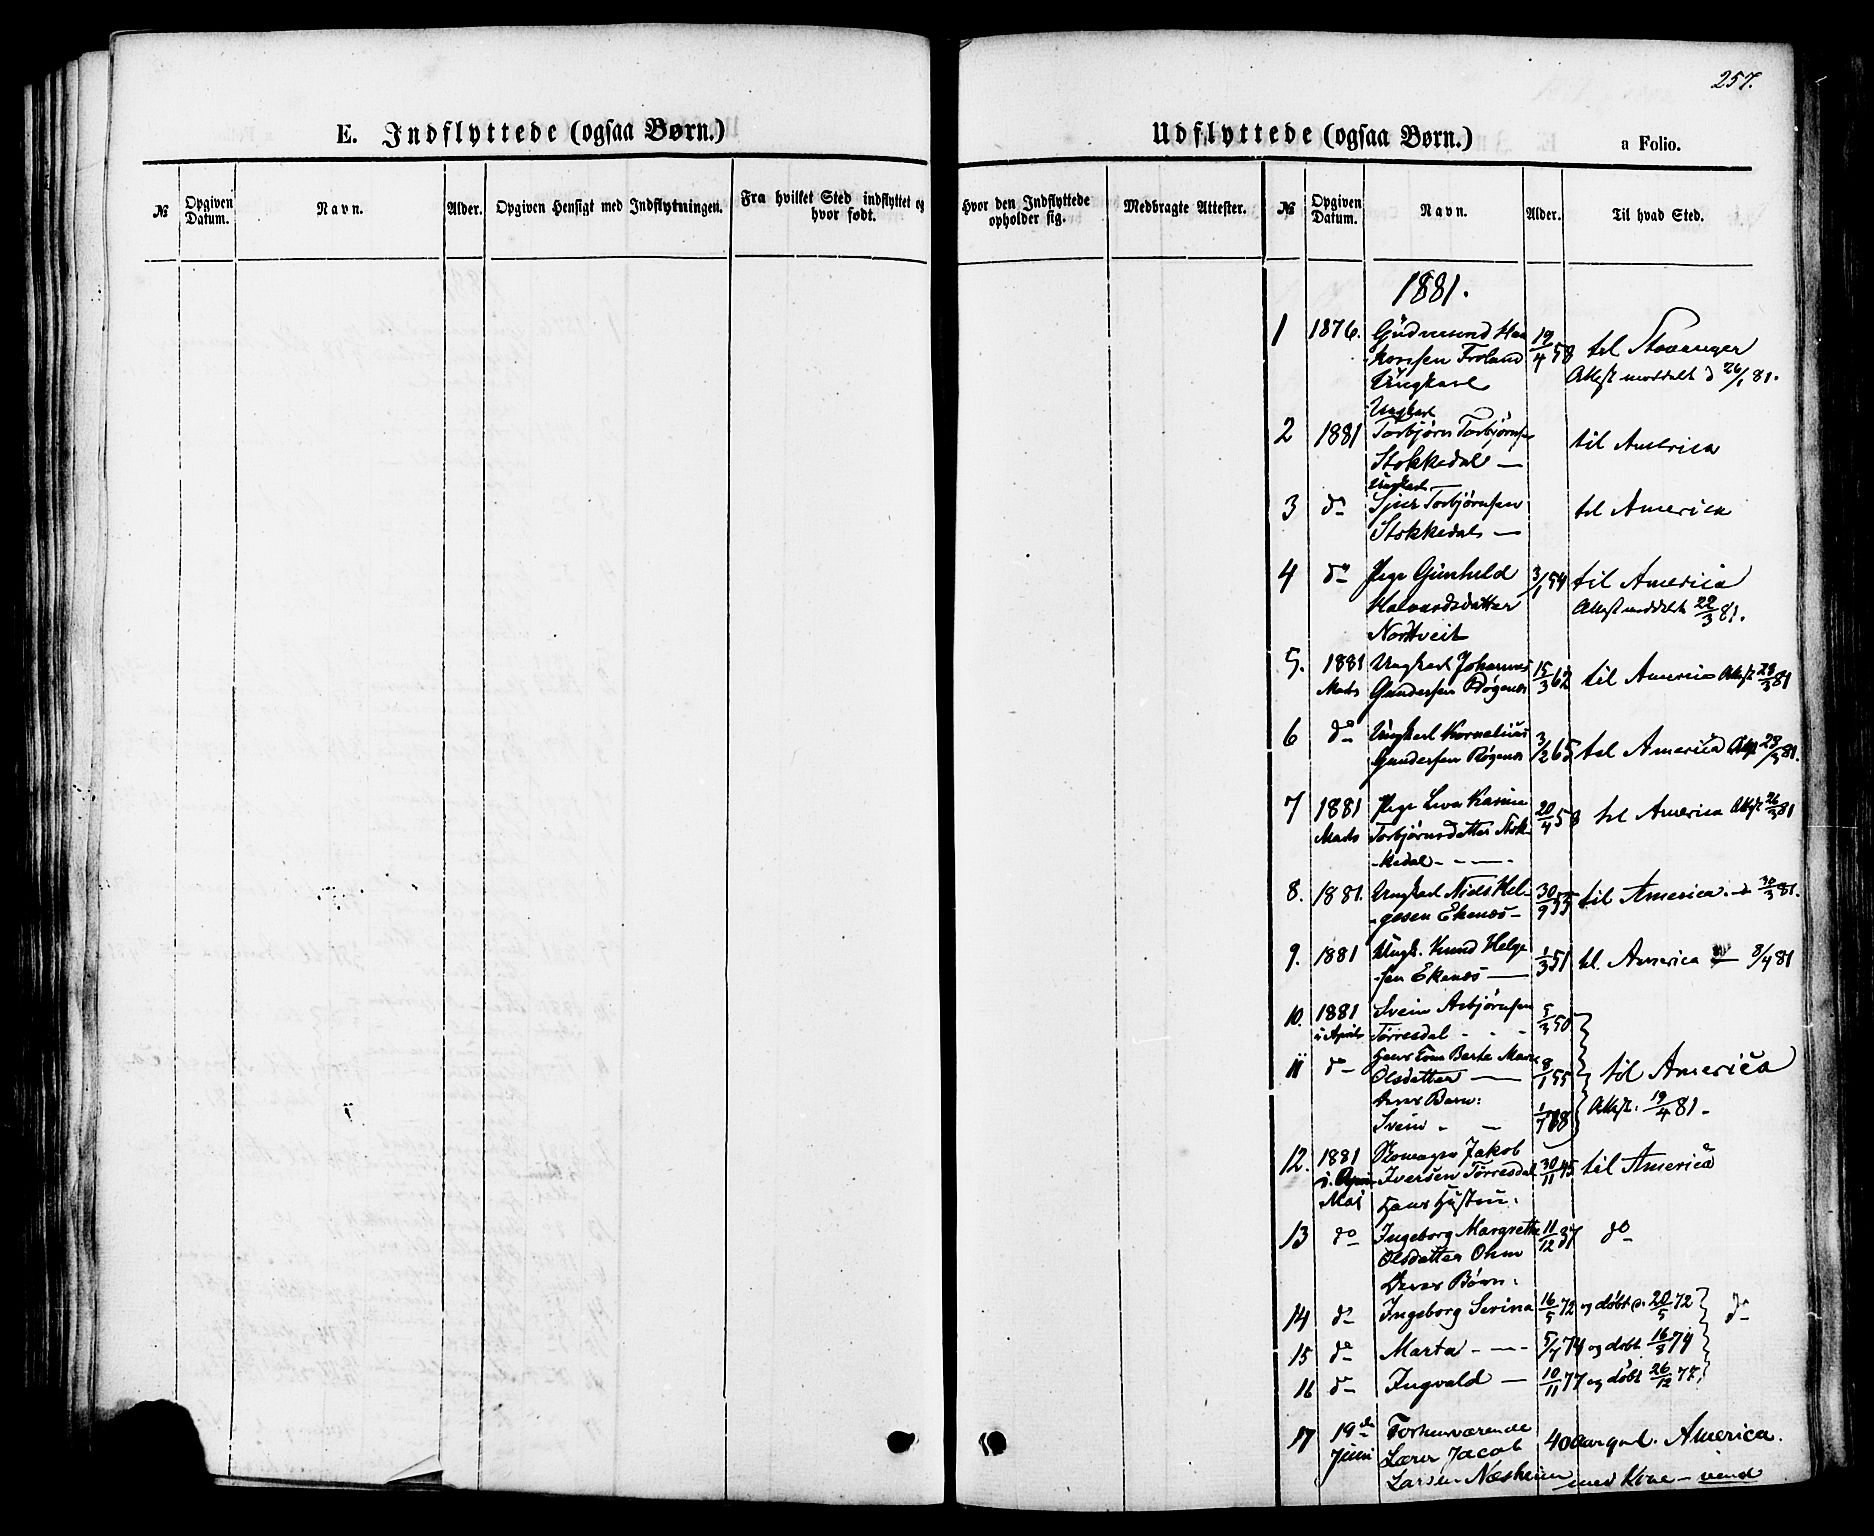 257.
E. Indflyttede (ogsaa Børn.)
Udflyttede (ogsaa Børn.)
a Folio.
№ Opgiven Datum. Navn. Alder. Opgiven Hensigt med Indflytningen. Fra hvilket Sted indflyttet og hvor født. Hvor den Indflyttede opholder sig. Medbragte Attester. № Opgiven Datum. Navn. Alder. Til hvad Sted.
1881.
1 1876. Gudmund Haa 19/4 58 til Stavanger
konsen Froland Attest meddelt d 26/1 81.
Ungkarl
Ungkarl
2 1881 Torbjørn Torbjørnsen til America
Stokkedal —
Ungkarl
3 do Sjur Torbjørnsen til America
Stokkedal —
4 do Pige Gunhild 3/1 54 til America
Halvardsdatter Attest meddelt 22/3 81.
Nordtveit
5. 1881 Ungkarl Johannes 15/3 62 til America Attest 28/3 81
Marts Gundersen Røgenæs
6 do Ungkarl Kornelius 3/2 65 til America Att. 28/3 81.
Gundersen Røgenæs
7 1881 Pige Lva Karine 20/4 58 til America Attest 26/3 81
Marts Torbjørnsdatter Stok-
-kedal - - — -
8. 1881. Ungkarl Niels Hel- 30/9 53 til America. - 30/3 81.
-gesen Ekenæs -
9. 1881 Ungk. Knud Helge 1/3 51 til America 8/4 81
-sen Ekenæs —
10. 1881 Svein Asbjørnsen 5/3 50
i April Tørresdal - - -
11 do Hans Kone Berte Marie 8/1 55 til America
Olsdatter —
deres Barn: Attest. 19/4 81.
Svein - - 1/7 88
12. 1881 Skomager Jakob 30/11 45 til America
i. April Iversen Tørresdal
Mai Hans Hustru:
13 do Ingeborg Margrethe 11/12 37 do
Olsdatter Ohm
Deres Børn:
14 do Ingeborg Serina 16/5 72 og døbt d. 20/5 72 do
15 do Marta - - - 5/4 74 og døbt 16/5 74
16 do Ingvald — 10/11 77 og døbt 26/12 77
17 19de Forhenværende 40 Aar gml. America.
Juni Lærer Jacob
Larsen Næsheim med Kone - vend